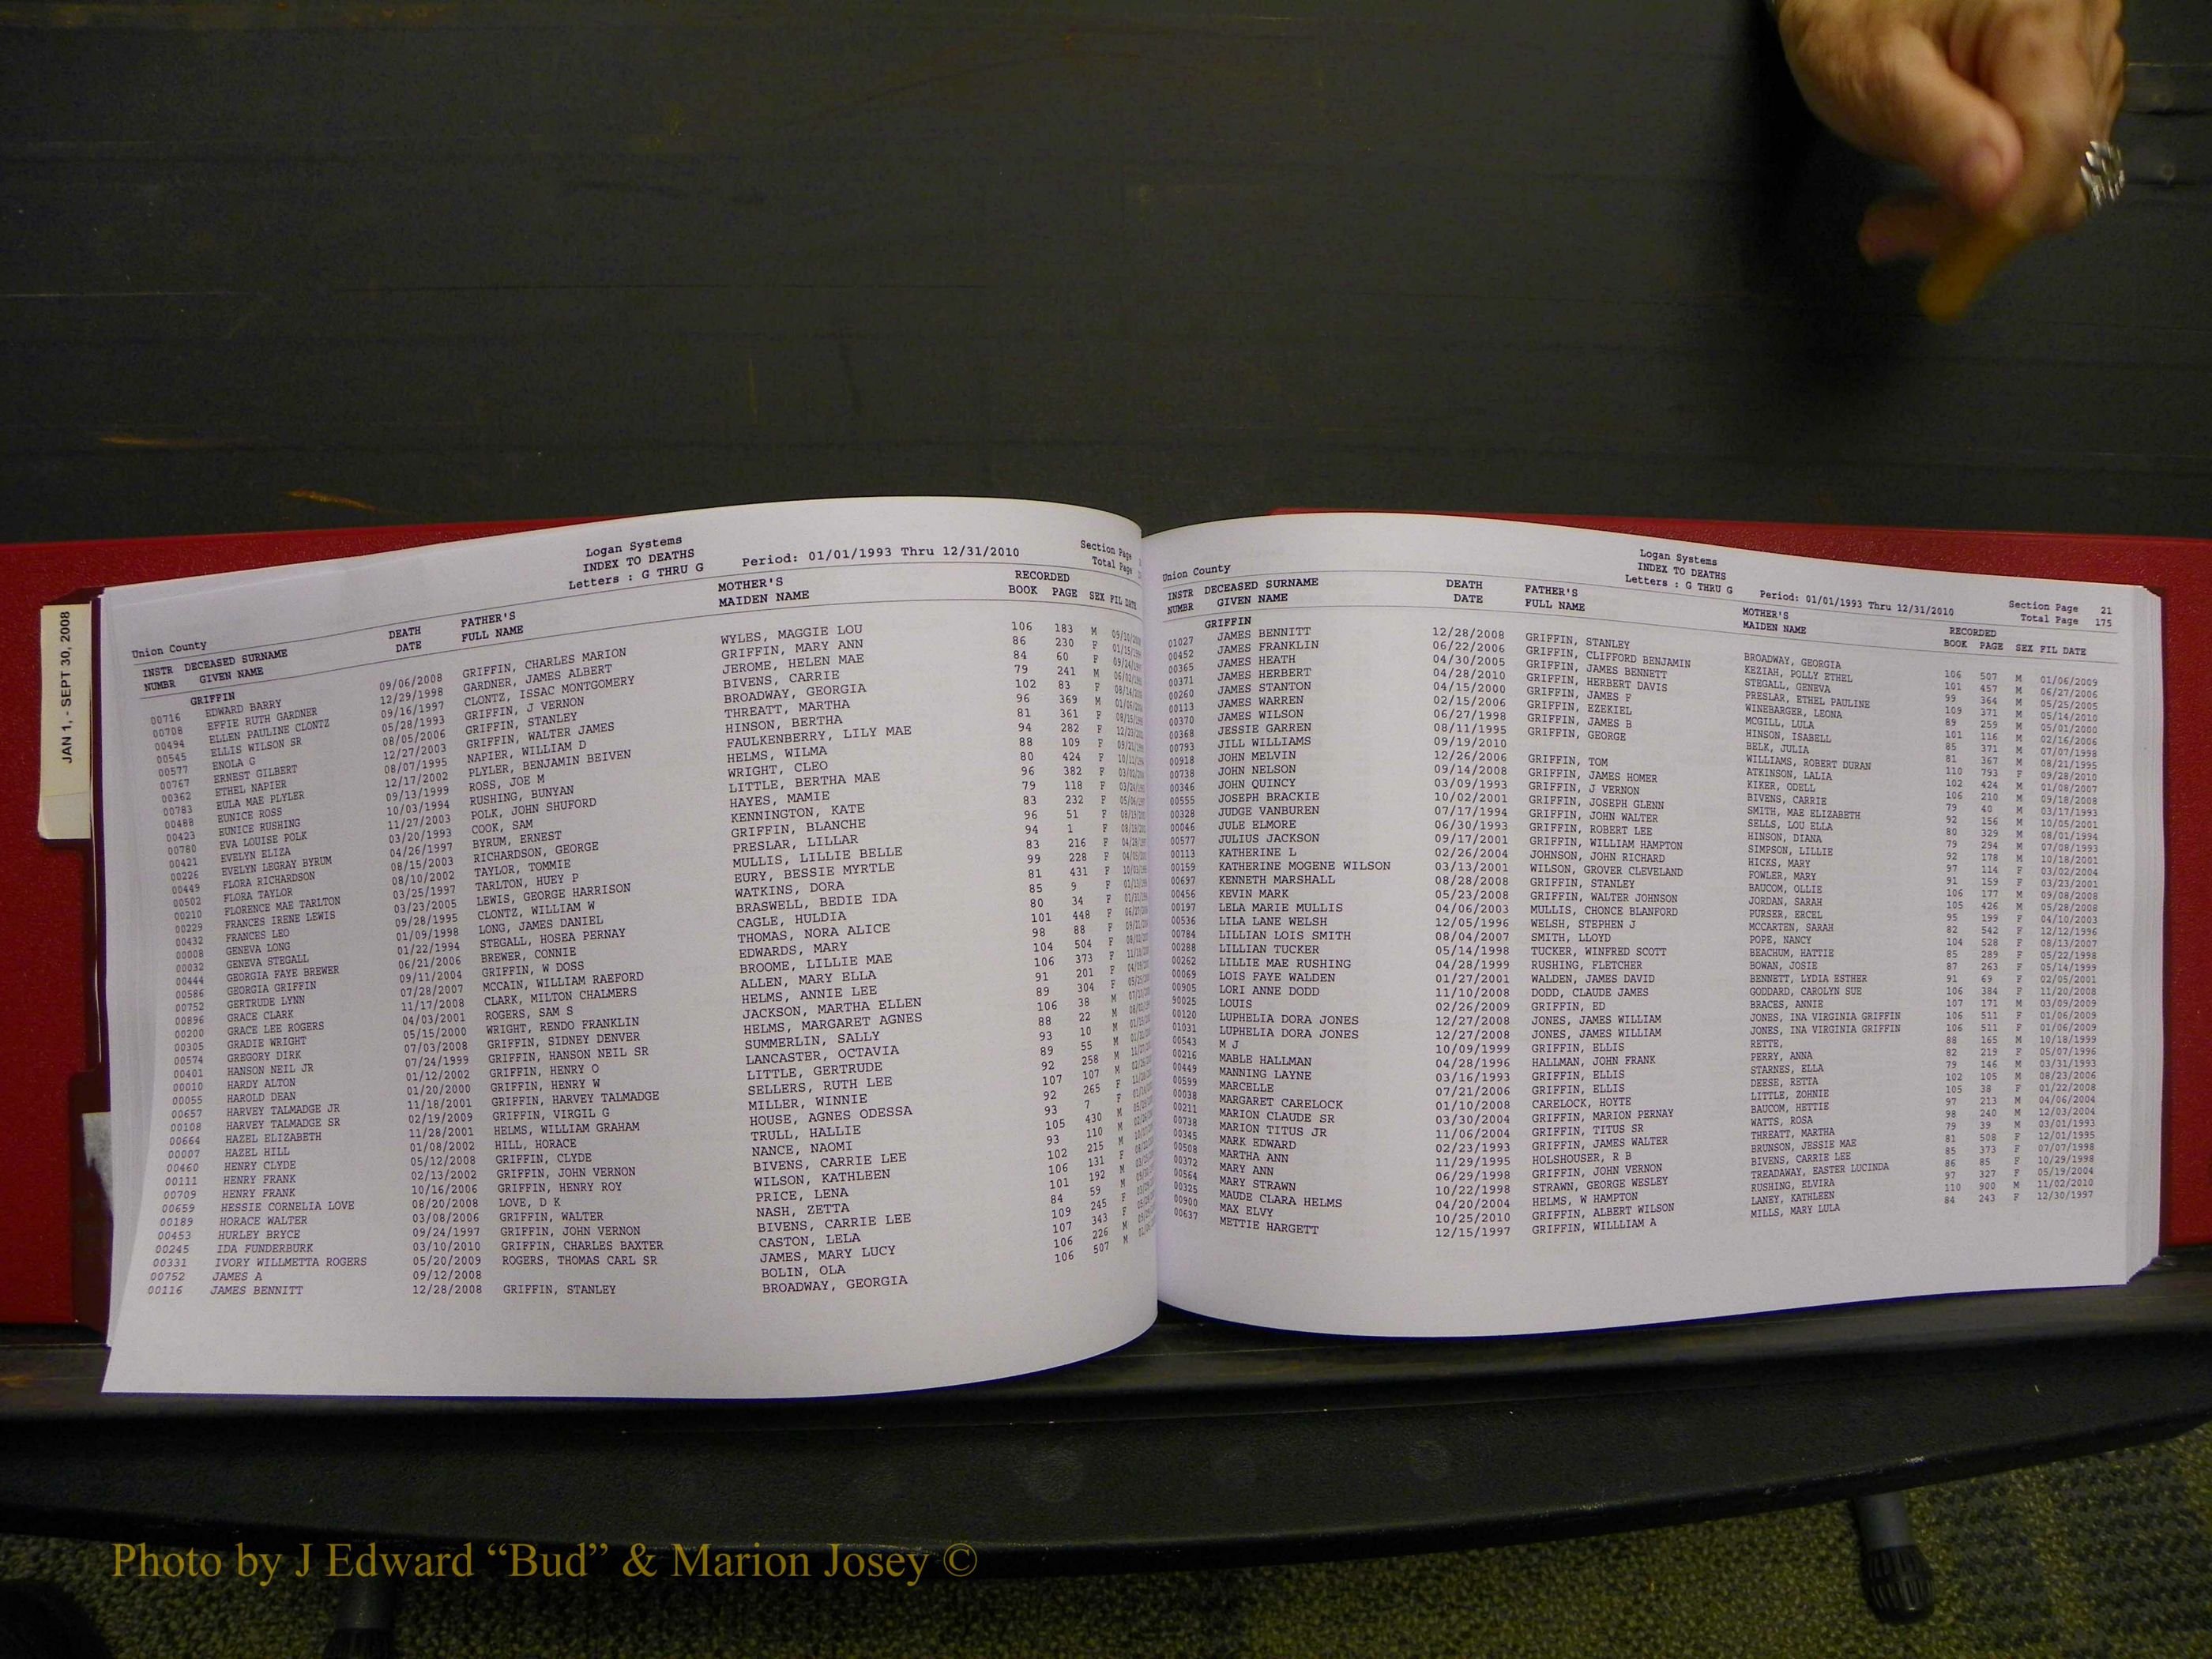 JAN 1, - SEPT 30, 2008
Logan Systems
INDEX TO DEATHS
Union County Letters : G THRU G Period: 01/01/1993 Thru 12/31/2010 Section Page
Total Page
INSTR DECEASED SURNAME DEATH FATHER'S MOTHER'S RECORDED
NUMBR GIVEN NAME DATE FULL NAME MAIDEN NAME BOOK PAGE SEX FIL DATE
GRIFFIN
00716 EDWARD BARRY 09/06/2008 GRIFFIN, CHARLES MARION WYLES, MAGGIE LOU 106 183 M
00708 EFFIE RUTH GARDNER 12/29/1998 GARDNER, JAMES ALBERT GRIFFIN, MARY ANN 86 230 F
00494 ELLEN PAULINE CLONTZ 09/16/1997 CLONTZ, ISSAC MONTGOMERY JEROME, HELEN MAE 84 60 F
00545 ELLIS WILSON SR 05/28/1993 GRIFFIN, J VERNON BIVENS, CARRIE 79 241 M
00577 ENOLA G 08/05/2006 GRIFFIN, STANLEY BROADWAY, GEORGIA 102 83 F
00767 ERNEST GILBERT 12/27/2003 GRIFFIN, WALTER JAMES THREATT, MARTHA 96 369 M
00362 ETHEL NAPIER 08/07/1995 NAPIER, WILLIAM D HINSON, BERTHA 81 361 F
00783 EULA MAE PLYLER 12/17/2002 PLYLER, BENJAMIN BEIVEN FAULKENBERRY, LILY MAE 94 282 F
00488 EUNICE ROSS 09/13/1999 ROSS, JOE M HELMS, WILMA 88 109 F
00423 EUNICE RUSHING 10/03/1994 RUSHING, BUNYAN WRIGHT, CLEO 80 424 F
00780 EVA LOUISE POLK 11/27/2003 POLK, JOHN SHUFORD LITTLE, BERTHA MAE 96 382 F
00421 EVELYN ELIZA 03/20/1993 COOK, SAM HAYES, MAMIE 79 118 F
00226 EVELYN LEGRAY BYRUM 04/26/1997 BYRUM, ERNEST KENNINGTON, KATE 83 232 F
00449 FLORA RICHARDSON 08/15/2003 RICHARDSON, GEORGE GRIFFIN, BLANCHE 96 51 F
00502 FLORA TAYLOR 08/10/2002 TAYLOR, TOMMIE PRESLAR, LILLAR 94 1 F
00210 FLORENCE MAE TARLTON 03/25/1997 TARLTON, HUEY P MULLIS, LILLIE BELLE 83 216 F
00229 FRANCES IRENE LEWIS 03/23/2005 LEWIS, GEORGE HARRISON EURY, BESSIE MYRTLE 99 228 F
00432 FRANCES LEO 09/28/1995 CLONTZ, WILLIAM W WATKINS, DORA 81 431 F
00008 GENEVA LONG 01/09/1998 LONG, JAMES DANIEL BRASWELL, BEDIE IDA 85 9 F
00032 GENEVA STEGALL 01/22/1994 STEGALL, HOSEA PERNAY CAGLE, HULDIA 80 34 F
00444 GEORGIA FAYE BREWER 06/21/2006 BREWER, CONNIE THOMAS, NORA ALICE 101 448 F
00586 GEORGIA GRIFFIN 09/11/2004 GRIFFIN, W DOSS EDWARDS, MARY 98 88 F
00752 GERTRUDE LYNN 07/28/2007 MCCAIN, WILLIAM RAEFORD BROOME, LILLIE MAE 104 504 F
00896 GRACE CLARK 11/17/2008 CLARK, MILTON CHALMERS ALLEN, MARY ELLA 106 373 F
00200 GRACE LEE ROGERS 04/03/2001 ROGERS, SAM S HELMS, ANNIE LEE 91 201 F
00305 GRADIE WRIGHT 05/15/2000 WRIGHT, RENDO FRANKLIN JACKSON, MARTHA ELLEN 89 304 F
00574 GREGORY DIRK 07/03/2008 GRIFFIN, SIDNEY DENVER HELMS, MARGARET AGNES 106 38 M
00401 HANSON NEIL JR 07/24/1999 GRIFFIN, HANSON NEIL SR SUMMERLIN, SALLY 88 22 M
00010 HARDY ALTON 01/12/2002 GRIFFIN, HENRY O LANCASTER, OCTAVIA 93 10 M
00055 HAROLD DEAN 01/20/2000 GRIFFIN, HENRY W LITTLE, GERTRUDE 89 55 M
00657 HARVEY TALMADGE JR 11/18/2001 GRIFFIN, HARVEY TALMADGE SELLERS, RUTH LEE 92 258 M
00108 HARVEY TALMADGE SR 02/19/2009 GRIFFIN, VIRGIL G MILLER, WINNIE 107 107 M
00664 HAZEL ELIZABETH 11/28/2001 HELMS, WILLIAM GRAHAM HOUSE, AGNES ODESSA 92 265 F
00007 HAZEL HILL 01/08/2002 HILL, HORACE TRULL, HALLIE 93 7 F
00460 HENRY CLYDE 05/12/2008 GRIFFIN, CLYDE NANCE, NAOMI 105 430 M
00111 HENRY FRANK 02/13/2002 GRIFFIN, JOHN VERNON BIVENS, CARRIE LEE 93 110 M
00709 HENRY FRANK 10/16/2006 GRIFFIN, HENRY ROY WILSON, KATHLEEN 102 215 M
00659 HESSIE CORNELIA LOVE 08/20/2008 LOVE, D K PRICE, LENA 106 131 F
00189 HORACE WALTER 03/08/2006 GRIFFIN, WALTER NASH, ZETTA 101 192 M
00453 HURLEY BRYCE 09/24/1997 GRIFFIN, JOHN VERNON BIVENS, CARRIE LEE 84 59 M
00245 IDA FUNDERBURK 03/10/2010 GRIFFIN, CHARLES BAXTER CASTON, LELA 109 245 F
00331 IVORY WILLMETTA ROGERS 05/20/2009 ROGERS, THOMAS CARL SR JAMES, MARY LUCY 107 343 F
00752 JAMES A 09/12/2008 BOLIN, OLA 106 226 M
00116 JAMES BENNITT 12/28/2008 GRIFFIN, STANLEY BROADWAY, GEORGIA 106 507 M
Logan Systems
INDEX TO DEATHS
Union County Letters : G THRU G Period: 01/01/1993 Thru 12/31/2010 Section Page 21
Total Page 175
INSTR DECEASED SURNAME DEATH FATHER'S MOTHER'S RECORDED
NUMBR GIVEN NAME DATE FULL NAME MAIDEN NAME BOOK PAGE SEX FIL DATE
GRIFFIN
01027 JAMES BENNITT 12/28/2008 GRIFFIN, STANLEY BROADWAY, GEORGIA 106 507 M 01/06/2009
00452 JAMES FRANKLIN 06/22/2006 GRIFFIN, CLIFFORD BENJAMIN KEZIAH, POLLY ETHEL 101 457 M 06/27/2006
00365 JAMES HEATH 04/30/2005 GRIFFIN, JAMES BENNETT STEGALL, GENEVA 99 364 M 05/25/2005
00371 JAMES HERBERT 04/28/2010 GRIFFIN, HERBERT DAVIS PRESLAR, ETHEL PAULINE 109 371 M 05/14/2010
00260 JAMES STANTON 04/15/2000 GRIFFIN, JAMES F WINEBARGER, LEONA 89 259 M 05/01/2000
00113 JAMES WARREN 02/15/2006 GRIFFIN, EZEKIEL MCGILL, LULA 101 116 M 02/16/2006
00370 JAMES WILSON 06/27/1998 GRIFFIN, JAMES B HINSON, ISABELL 85 371 M 07/07/1998
00368 JESSIE GARREN 08/11/1995 GRIFFIN, GEORGE BELK, JULIA 81 367 M 08/21/1995
00793 JILL WILLIAMS 09/19/2010 WILLIAMS, ROBERT DURAN 110 793 F 09/28/2010
00918 JOHN MELVIN 12/26/2006 GRIFFIN, TOM ATKINSON, LALIA 102 424 M 01/08/2007
00738 JOHN NELSON 09/14/2008 GRIFFIN, JAMES HOMER KIKER, ODELL 106 210 M 09/18/2008
00346 JOHN QUINCY 03/09/1993 GRIFFIN, J VERNON BIVENS, CARRIE 79 40 M 03/17/1993
00555 JOSEPH BRACKIE 10/02/2001 GRIFFIN, JOSEPH GLENN SMITH, MAE ELIZABETH 92 156 M 10/05/2001
00328 JUDGE VANBUREN 07/17/1994 GRIFFIN, JOHN WALTER SELLS, LOU ELLA 80 329 M 08/01/1994
00046 JULE ELMORE 06/30/1993 GRIFFIN, ROBERT LEE HINSON, DIANA 79 294 M 07/08/1993
00577 JULIUS JACKSON 09/17/2001 GRIFFIN, WILLIAM HAMPTON SIMPSON, LILLIE 92 178 M 10/18/2001
00113 KATHERINE L 02/26/2004 JOHNSON, JOHN RICHARD HICKS, MARY 97 114 F 03/02/2004
00159 KATHERINE MOGENE WILSON 03/13/2001 WILSON, GROVER CLEVELAND FOWLER, MARY 91 159 F 03/23/2001
00697 KENNETH MARSHALL 08/28/2008 GRIFFIN, STANLEY BAUCOM, OLLIE 106 177 M 09/08/2008
00456 KEVIN MARK 05/23/2008 GRIFFIN, WALTER JOHNSON JORDAN, SARAH 105 426 M 05/28/2008
00197 LELA MARIE MULLIS 04/06/2003 MULLIS, CHONCE BLANFORD PURSER, ERCEL 95 199 F 04/10/2003
00536 LILA LANE WELSH 12/05/1996 WELSH, STEPHEN J MCCARTEN, SARAH 82 542 F 12/12/1996
00784 LILLIAN LOIS SMITH 08/04/2007 SMITH, LLOYD POPE, NANCY 104 528 F 08/13/2007
00288 LILLIAN TUCKER 05/14/1998 TUCKER, WINFRED SCOTT BEACHUM, HATTIE 85 289 F 05/22/1998
00262 LILLIE MAE RUSHING 04/28/1999 RUSHING, FLETCHER BOWAN, JOSIE 87 263 F 05/14/1999
00069 LOIS FAYE WALDEN 01/27/2001 WALDEN, JAMES DAVID BENNETT, LYDIA ESTHER 91 69 F 02/05/2001
00905 LORI ANNE DODD 11/10/2008 DODD, CLAUDE JAMES GODDARD, CAROLYN SUE 106 384 F 11/20/2008
90025 LOUIS 02/26/2009 GRIFFIN, ED BRACES, ANNIE 107 171 M 03/09/2009
00120 LUPHELIA DORA JONES 12/27/2008 JONES, JAMES WILLIAM JONES, INA VIRGINIA GRIFFIN 106 511 F 01/06/2009
01031 LUPHELIA DORA JONES 12/27/2008 JONES, JAMES WILLIAM JONES, INA VIRGINIA GRIFFIN 106 511 F 01/06/2009
00543 M J 10/09/1999 GRIFFIN, ELLIS RETTE, 88 165 M 10/18/1999
00216 MABLE HALLMAN 04/28/1996 HALLMAN, JOHN FRANK PERRY, ANNA 82 219 F 05/07/1996
00449 MANNING LAYNE 03/16/1993 GRIFFIN, ELLIS STARNES, ELLA 79 146 M 03/31/1993
00599 MARCELLE 07/21/2006 GRIFFIN, ELLIS DEESE, RETTA 102 105 M 08/23/2006
00038 MARGARET CARELOCK 01/10/2008 CARELOCK, HOYTE LITTLE, ZOHNIE 105 38 F 01/22/2008
00211 MARION CLAUDE SR 03/30/2004 GRIFFIN, MARION PERNAY BAUCOM, HETTIE 97 213 M 04/06/2004
00738 MARION TITUS JR 11/06/2004 GRIFFIN, TITUS SR WATTS, ROSA 98 240 M 12/03/2004
00345 MARK EDWARD 02/23/1993 GRIFFIN, JAMES WALTER THREATT, MARTHA 79 39 M 03/01/1993
00508 MARTHA ANN 11/29/1995 HOLSHOUSER, R B BRUNSON, JESSIE MAE 81 508 F 12/01/1995
00372 MARY ANN 06/29/1998 GRIFFIN, JOHN VERNON BIVENS, CARRIE LEE 85 373 F 07/07/1998
00564 MARY STRAWN 10/22/1998 STRAWN, GEORGE WESLEY TREADAWAY, EASTER LUCINDA 86 85 F 10/29/1998
00325 MAUDE CLARA HELMS 04/20/2004 HELMS, W HAMPTON RUSHING, ELVIRA 97 327 F 05/19/2004
00900 MAX ELVY 10/25/2010 GRIFFIN, ALBERT WILSON LANEY, KATHLEEN 110 900 M 11/02/2010
00637 METTIE HARGETT 12/15/1997 GRIFFIN, WILLLIAM A MILLS, MARY LULA 84 243 F 12/30/1997
Photo by J Edward “Bud” & Marion Josey ©